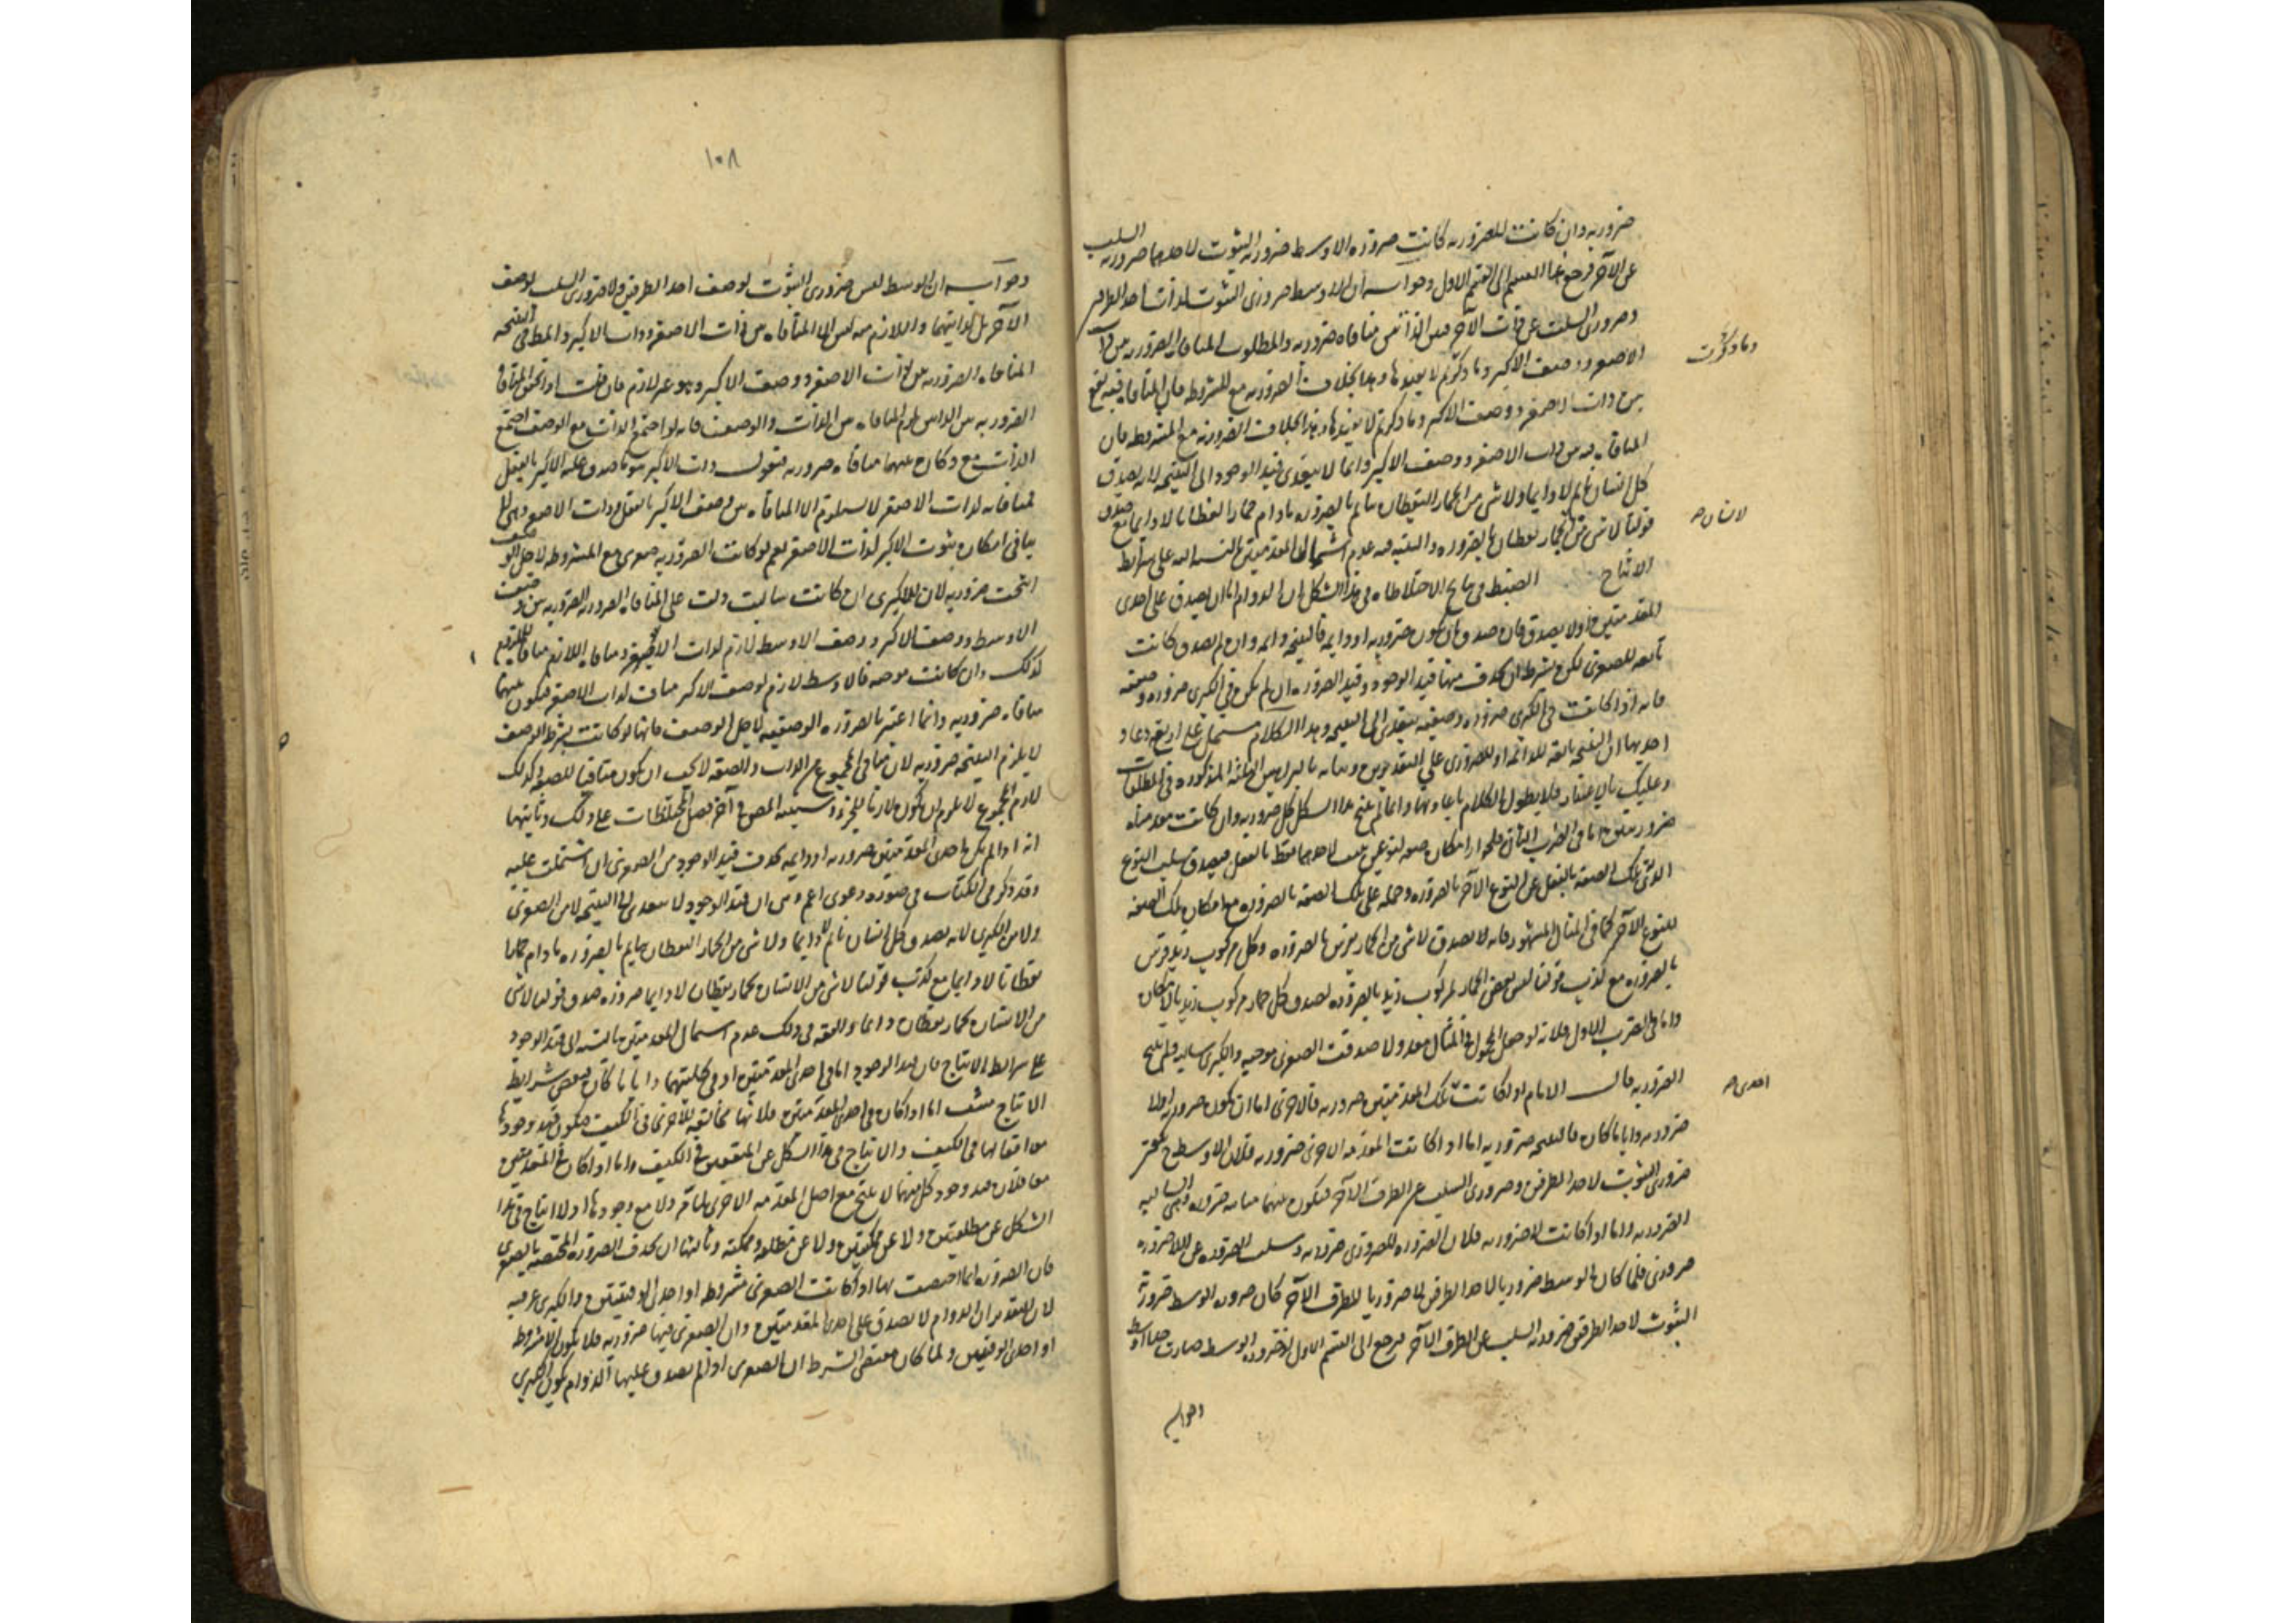 ضرورية وان كانت للضرورية كانت ضرورة الاوسط ضرورية الثبوت لاحدهما ضرورية السلب
عن الآخر فرجع هذا القسم الى القسم الاول وجوابه ان الاوسط ضروري الثبوت لذات احد الطرفين
وضروري السلب عن ذات الآخر فبين الذاتين منافاة ضرورية والمطلوب المنافاة الضرورية بين ذات
الاصغر ووصف الاكبر وما ذكرتم لا يفيدها وهذا بخلاف الضرورية مع المشروطة فان المنافاة فيه
بين ذات الاصغر ووصف الاكبر وما ذكرتم لا يفيدها وهذا بخلاف الضرورية مع المشروطة فان
المنافاة فيه بين ذات الاصغر ووصف الاكبر وانما لا يتعدى قيد الوجود الى النتيجة لانه يصدق
كل انسان نائم لا دايما ولا شي من الحمار اليقظان بنائم بالضرورة ما دام حمارا يقظانا لا دايما مع صدق
قولنا لا شي من بحمار يقظان بالضرورة والسبب فيه عدم اشتمال المقدمتين بالنسبة اليه على شرايط
الانتاج الضبط في نتايج الاختلاطات في هذا الشكل ان الدوام اما ان يصدق على احدى
المقدمتين اولا يصدق فان صدق بان تكون ضرورية او دايمة فالنتيجة دايمة وان لم يصدق كانت
تابعة للصغرى لكن بشرط ان يحذف منها قيد الوجود وقيد الضرورة ان لم يكن في الكبرى ضرورة وصفية
فانه اذا كانت في الكبرى ضرورة وصفية يتعدى الى النتيجة وهذا الكلام مشتمل على اربع دعاو
احديها ان النتيجة تابعة للدائمة او للضروري على التقديرين وبيانه بالبراهين الثلثة المذكورة في المطلقات
وعليك بالاعتبار فلا يطول الكلام باعادتها وانما لم ينتج هذا الشكل كل ضرورية وان كانت مقدمتاه
ضروريتين اما في الضرب الثاني فلجواز امكان صفة لنوعين يثبت لاحدهما فقط بالفعل فيصدق سلب النوع
الذي له تلك الصفة بالفعل عن النوع الآخر بالضرورة وحمله على تلك الصفة بالضرورة مع امكان تلك الصفة
للنوع الآخر كما في المثال المشهور فانه لا يصدق لا شي من الحمار بفرس بالضرورة وكل مركوب زيد فرس
بالضرورة مع كذب قولنا ليس بعض الحمار بمركوب زيد بالضرورة لصدق كل حمار مركوب زيد بالامكان
واما في الضرب الاول فلانه لو جعل المحمول في المثال معدولا صدقت الصغرى موجبة والكبرى سالبة فلم ينتج
الضرورية قال الامام لو كانت تلك المقدمتين ضرورية فالاخرى اما ان تكون ضرورية اولا
ضرورية وايا ما كان فالنتيجة ضرورية اما اذا كانت المقدمة الاخرى ضرورية فلان الاوسط ح يكون
ضروري الثبوت لاحد الطرفين وضروري السلب عن الطرف الآخر فيكون بينهما مباينة ضرورة وهي السالبة
الضرورية واما اذا كانت لا ضرورية فلان الضرورة للضروري ضرورية وسلب الضرورة عن اللاضرورة
ضروري فلما كان الوسط ضروريا لاحد الطرفين لا ضروريا للطرف الآخر كان ضرورة الوسط ضرورية
الثبوت لاحد الطرفين ضرورية السلب عن الطرف الآخر فيرجع الى القسم الاول لان ضرورة الوسط صارت اوسط
وجوابه
وما ذكرت
لانسان صح
احدى صح
١٠٨
وجوابه ان الوسط ليس ضروري الثبوت لوصف احد الطرفين ولا ضروري السلب لوصف
الآخر بل لذاتيهما واللازم منه ليس الا المنافاة بين ذات الاصغر وذات الاكبر والمط في النتيجة
المنافاة الضرورية بين ذات الاصغر ووصف الاكبر وهو غير لازم فان قلت اذا تحقق المنافاة
الضرورية بين الذاتين لزم المنافاة بين الذات والوصف فانه لو اجتمع الذات مع الوصف اجتمع
الذات مع وكان بينهما منافاة ضرورية فنقول ذات الاكبر هو ما صدق عليه الاكبر بالفعل
فمنافاته لذات الاصغر لا يستلزم الا المنافاة بين وصف الاكبر بالفعل وذات الاصغر وهي لا
ينافي امكان ثبوت الاكبر لذات الاصغر نعم لو كانت الضرورية صغرى مع المشروطة لاجل الوصف
انتجت ضرورية لان الكبرى ان كانت سالبة دلت على المنافاة الضرورية بين وصف
الاوسط ووصف الاكبر ووصف الاوسط لازم لذات الاصغر ومنافاة اللازم منافاة للملزوم
كذلك وان كانت موجبة فالاوسط لازم لوصف الاكبر مناف لذات الاصغر فيكون بينهما
منافاة ضرورية وانما اعتبرنا الضرورة الوصفية لاجل الوصف فانها لو كانت بشرط الوصف
لا يلزم النتيجة ضرورية لان منافي المجموع من الذات والصفة لا يجب ان يكون منافيا للصفة وكذلك
لازم المجموع لا يلزم ان يكون لازما للجزء وسينبه المص في آخر فصل المختلطات على ذلك وثانيتها
انه اذا لم يكن احدى المقدمتين ضرورية او دايمة يحذف قيد الوجود من الصغرى ان اشتملت عليه
وقد ذكر في الكتاب في صورة دعوى اعم وهي ان قيد الوجود لا يتعدى الى النتيجة لا من الصغرى
ولا من الكبرى لانه يصدق كل انسان نائم لا دايما ولا شي من الحمار اليقظان بنائم بالضرورة ما دام حمارا
يقظانا لا دايما مع كذب قولنا لا شي من الانسان بحمار يقظان لا دايما ضرورة صدق قولنا لا شي
من الانسان بحمار يقظان دايما والفقه في ذلك عدم اشتمال المقدمتين بالنسبة الى قيد الوجود
على شرايط الانتاج فان قيد الوجود اما في احدى المقدمتين او في كلتيهما وايا ما كان فبعض شرايط
الانتاج منتف اما اذا كان في احدى المقدمتين فلانها مخالفة للاخرى في الكيف فيكون قيد وجودها
موافقا لها في الكيف والانتاج في هذا الشكل عن المتفقتين في الكيف واما اذا كان في المقدمتين
معا فلان قيد وجود كل منهما لا ينتج مع اصل المقدمة الاخرى لما مر ولا مع وجودها اذ لا انتاج في هذا
الشكل عن مطلقتين ولا عن ممكنتين ولا عن مطلقة وممكنة وثالثها ان يحذف الضرورة المختصة بالصغرى
فان الضرورة انما اختصت بها اذا كانت الصغرى مشروطة او احدى الوقتيتين والكبرى عرفية
لان التقدير ان الدوام لا يصدق على احدى المقدمتين وان الصغرى فيها ضرورية فلا يكون الا مشروطة
او احدى الوقتيتين ولما كان مقتضى الشرط ان الصغرى اذا لم يصدق عليها الدوام يكون الكبرى